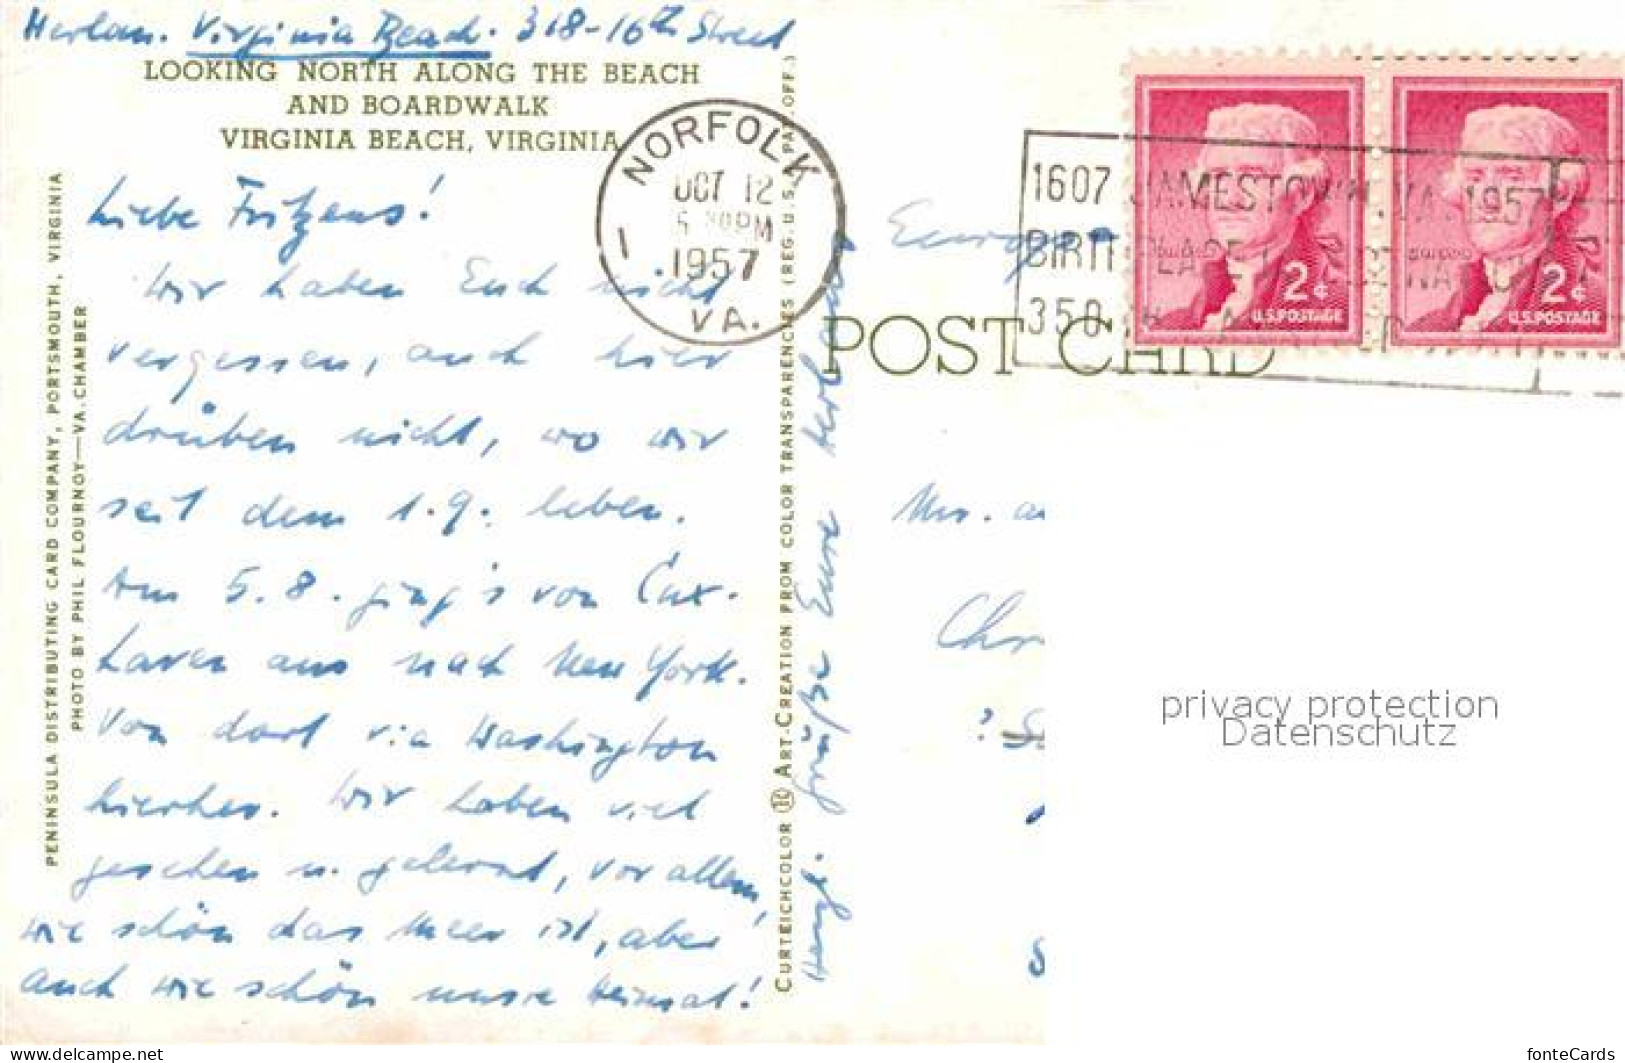 Herlan. Virginia Beach. 318-16th Street
LOOKING NORTH ALONG THE BEACH
AND BOARDWALK
VIRGINIA BEACH, VIRGINIA
Liebe Fritzens!
Wir haben Euch nicht
vergessen, auch hier
drüben nicht, wo wir
seit dem 1.9. leben.
Am 5.8. ging's von Cux-
haven aus nach New York.
Von dort via Washington
hierher. Wir haben viel
gesehen u. gelernt, vor allem,
wie schön das Meer ist, aber
auch wie schön unsre Heimat!
Herzl. Grüße Eure Herlans
PENINSULA DISTRIBUTING CARD COMPANY, PORTSMOUTH, VIRGINIA
PHOTO BY PHIL FLOURNOY—VA. CHAMBER
CURTEICHCOLOR ® ART-CREATION FROM COLOR TRANSPARENCIES (REG. U.S. PAT. OFF.)
NORFOLK
OCT 12
PM
1957
VA.
1
1607 JAMESTOWN, VA. 1957
350
2¢
U.S. POSTAGE
2¢
U.S. POSTAGE
Europa
POST CARD
Chr
privacy protection
Datenschutz
www.delcampe.net
fonteCards